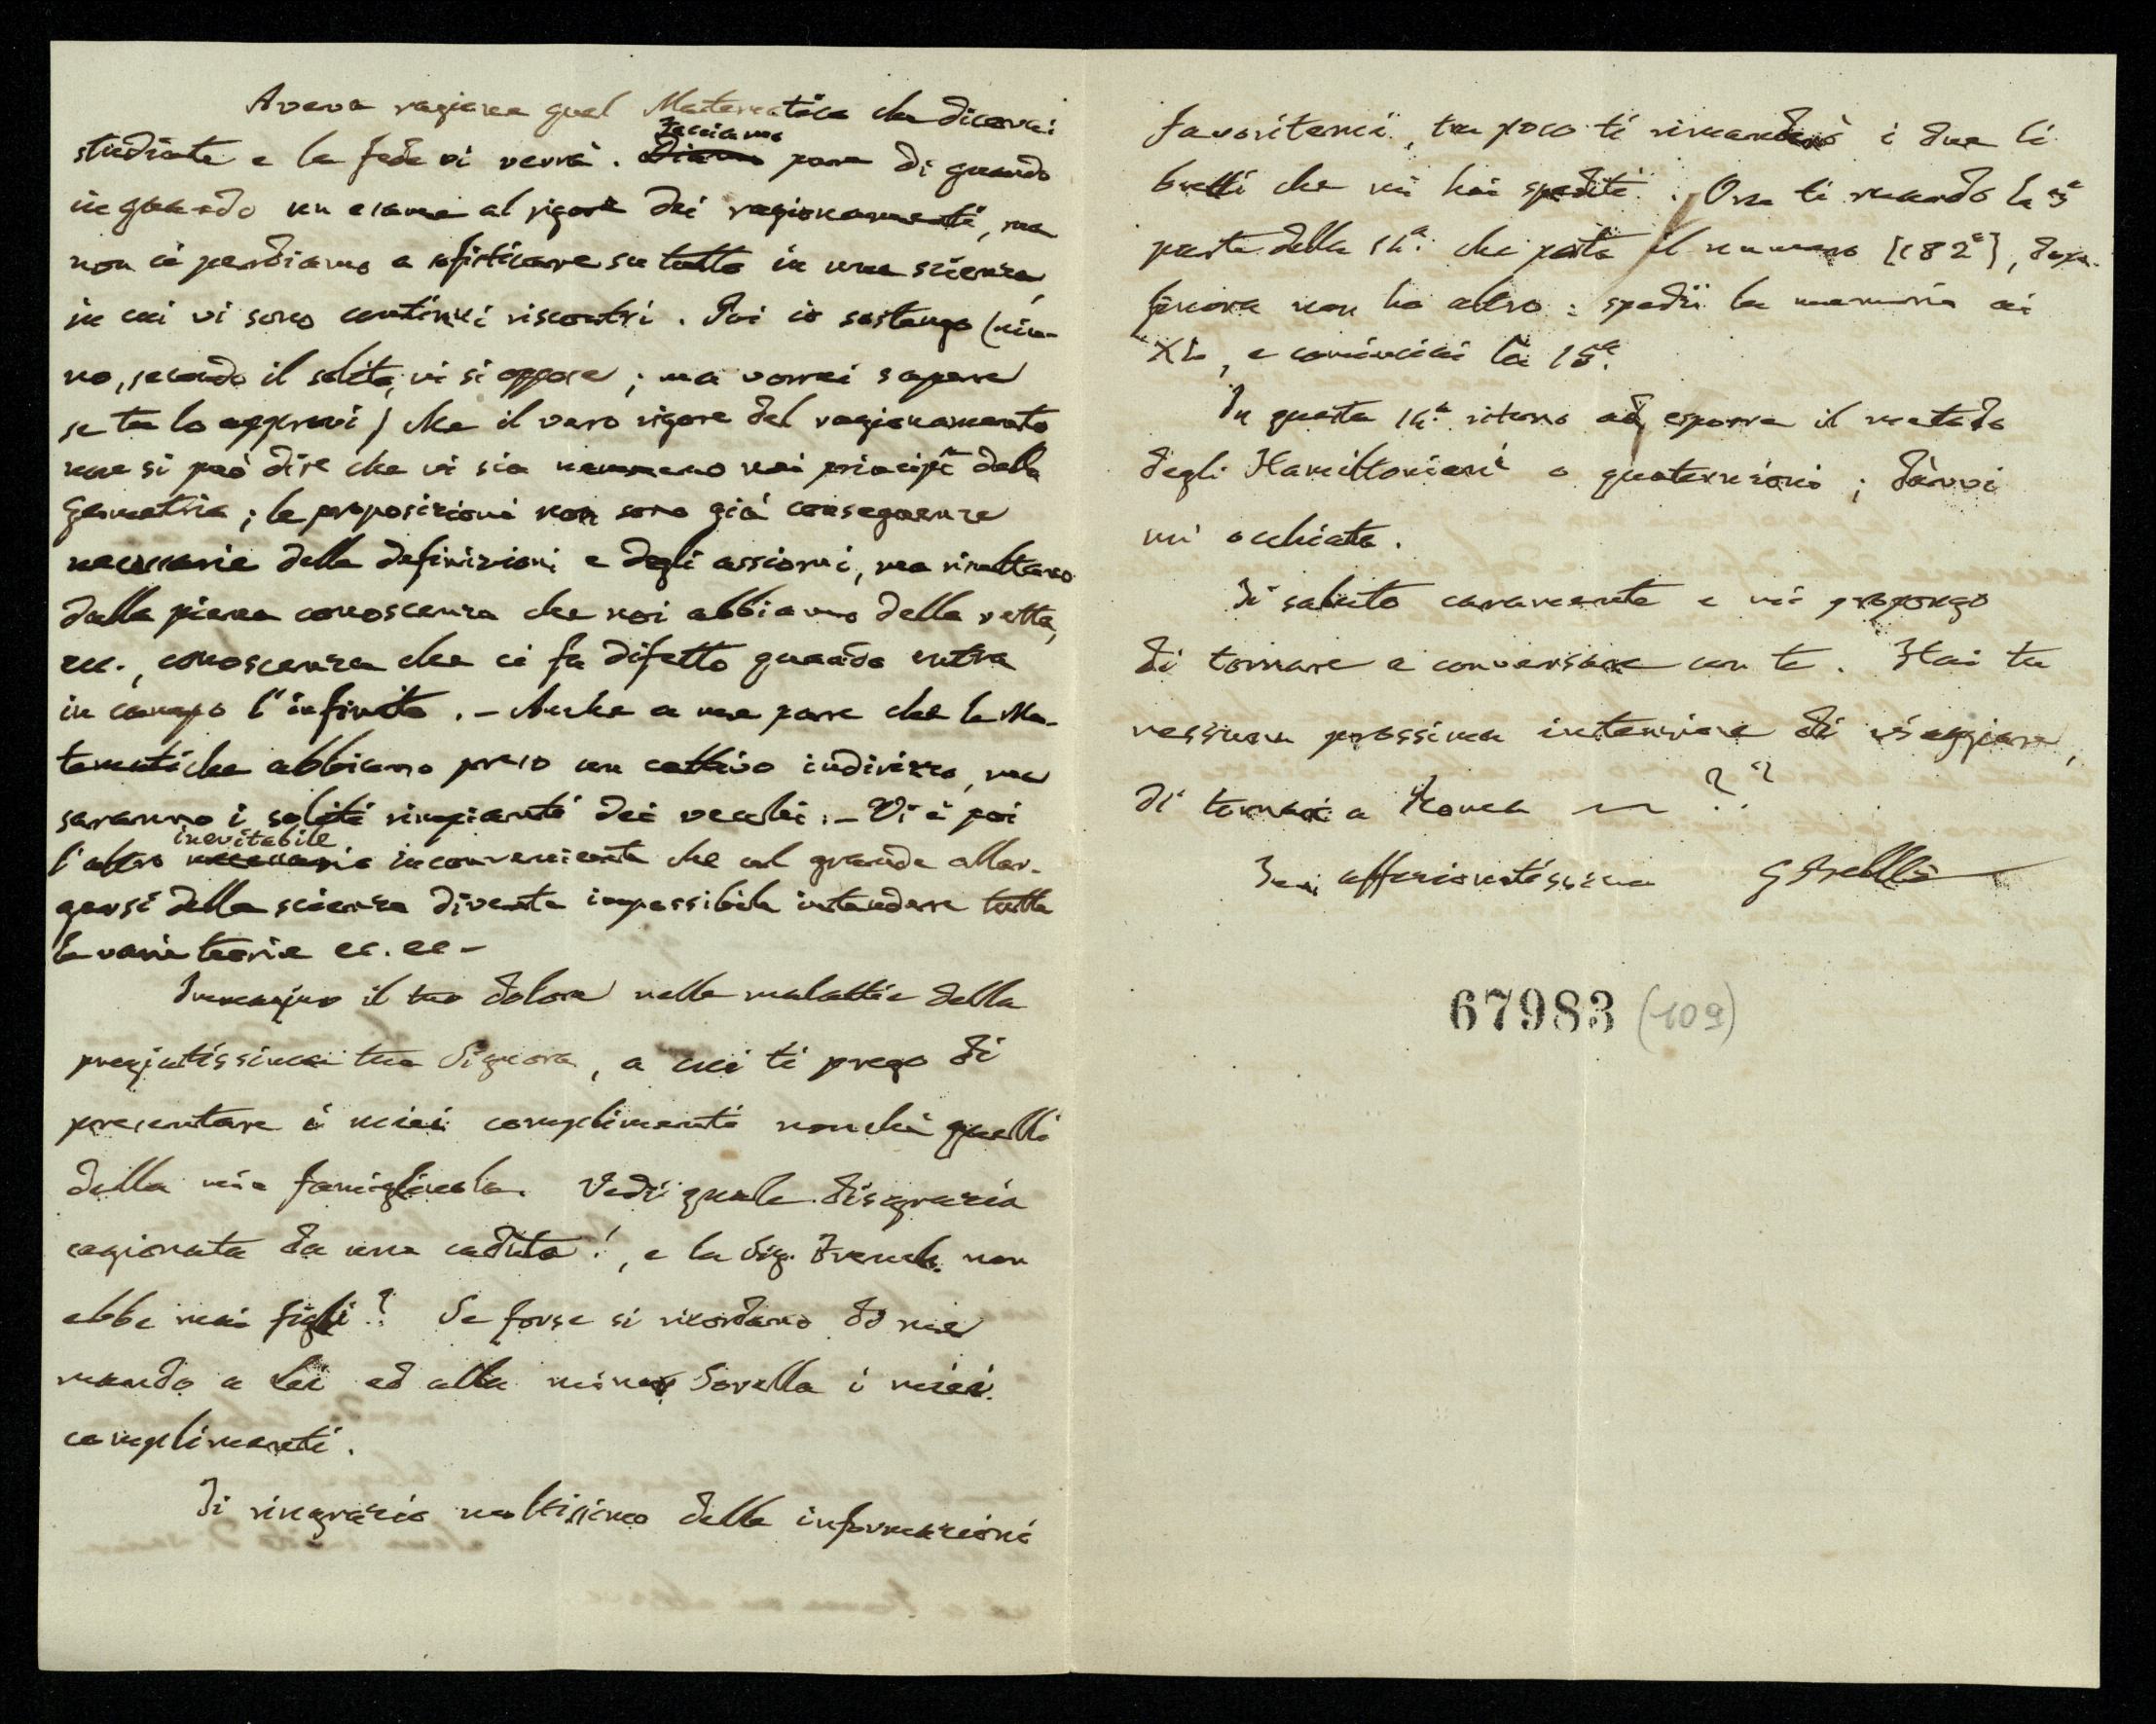 Aveva ragione quel Matematico che diceva:
studiate e la fede vi verrà. Facciamo pure di quando
in quando un esame al rigore dei ragionamenti, ma
non ci perdiamo a sofisticare su tutto in una scienza,
in cui vi sono continui riscontri. Poi io sostengo (niu-
no, secondo il solito, vi si oppose; ma vorrei sapere
se tu lo approvi) che il vero rigore del ragionamento
non si può dire che vi sia nemmeno nei principî della
Geometria; le proposizioni non sono già conseguenze
necessarie delle definizioni e degli assiomi, ma risultano
dalla piena conoscenza che noi abbiamo della retta,
ecc., conoscenza che ci fa difetto quando entra
in campo l'infinito. – Anche a me pare che le Ma-
tematiche abbiano preso un cattivo indirizzo, ma
saranno i soliti rimpianti dei vecchi. – Vi è poi
l'altro inevitabile inconveniente che col grande allar-
garsi della scienza diventa impossibile intendere tutte
le varie teorie ec. ec –
Immagino il tuo dolore nella malattia della
pregiatissima tua Signora, a cui ti prego di
presentare i miei complimenti nonchè quelli
della mia famigliuola. Vedi quale disgrazia
cagionata da una caduta!, e la Sig. non
ebbe mai figli? Se forse si ricordano di me
mando a Lei ed alla minor Sorella i miei
complimenti.
Ti ringrazio moltissimo delle informazioni
favoritemi, tra poco ti rimanderò i due li
bretti che mi hai spediti. Ora ti mando la 3ª
parte della 14ª. che porta il numero [182ª], dopo
finora non ho altro: spedii la memoria ai
XL, e cominciai la 15ª.
In questa 14ª. ritorno ad esporre il metodo
degli Hamiltoniani o quaternioni; dànvi
un' occhiata.
Ti saluto caramente e mi propongo
di tornare a conversare con te. Hai tu
nessuna prossima intenzione di viaggiare,
di tornare a Roma ??
Tuo affezionatissimo GBellB
67983 (109)